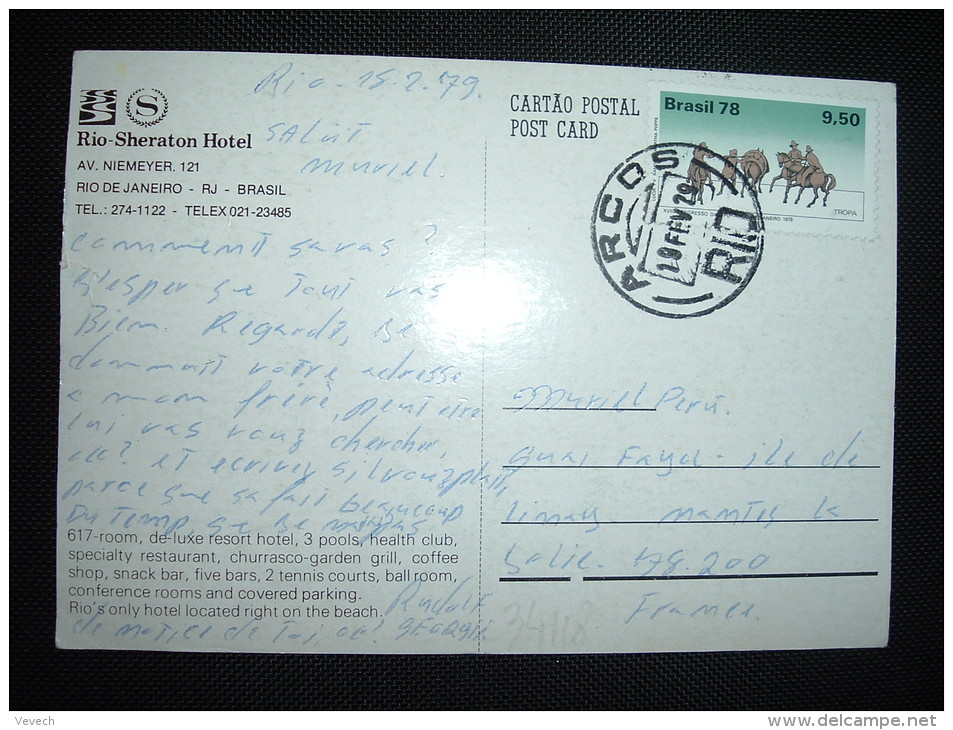 Rio-Sheraton Hotel
AV. NIEMEYER, 121
RIO DE JANEIRO - RJ - BRASIL
TEL.: 274-1122 - TELEX 021-23485
Rio - 15-2-79.
SALUT
Muriel.
comment savas ?
J'esper que tout vas
Bien. Regardà, Je
dommait votre adresse
a mom frère, peut etre
lui vas vouz chercher,
ok? et ecrivez silvouzplait,
parce que sa fait beaucoup
Du temp, que Je
617-room, de-luxe resort hotel, 3 pools, health club,
specialty restaurant, churrasco-garden grill, coffee
shop, snack bar, five bars, 2 tennis courts, ball room,
conference rooms and covered parking.
Rio's only hotel located right on the beach.
de de Toi, ok!
Rudolf
CARTÃO POSTAL
POST CARD
Brasil 78
9,50
TROPA
ARCOS
RIO
Muriel Peru.
Quai - ile de
Limay - Mantes la
Jolie. 78.200
France
34118
Vevech
www.delcampe.net